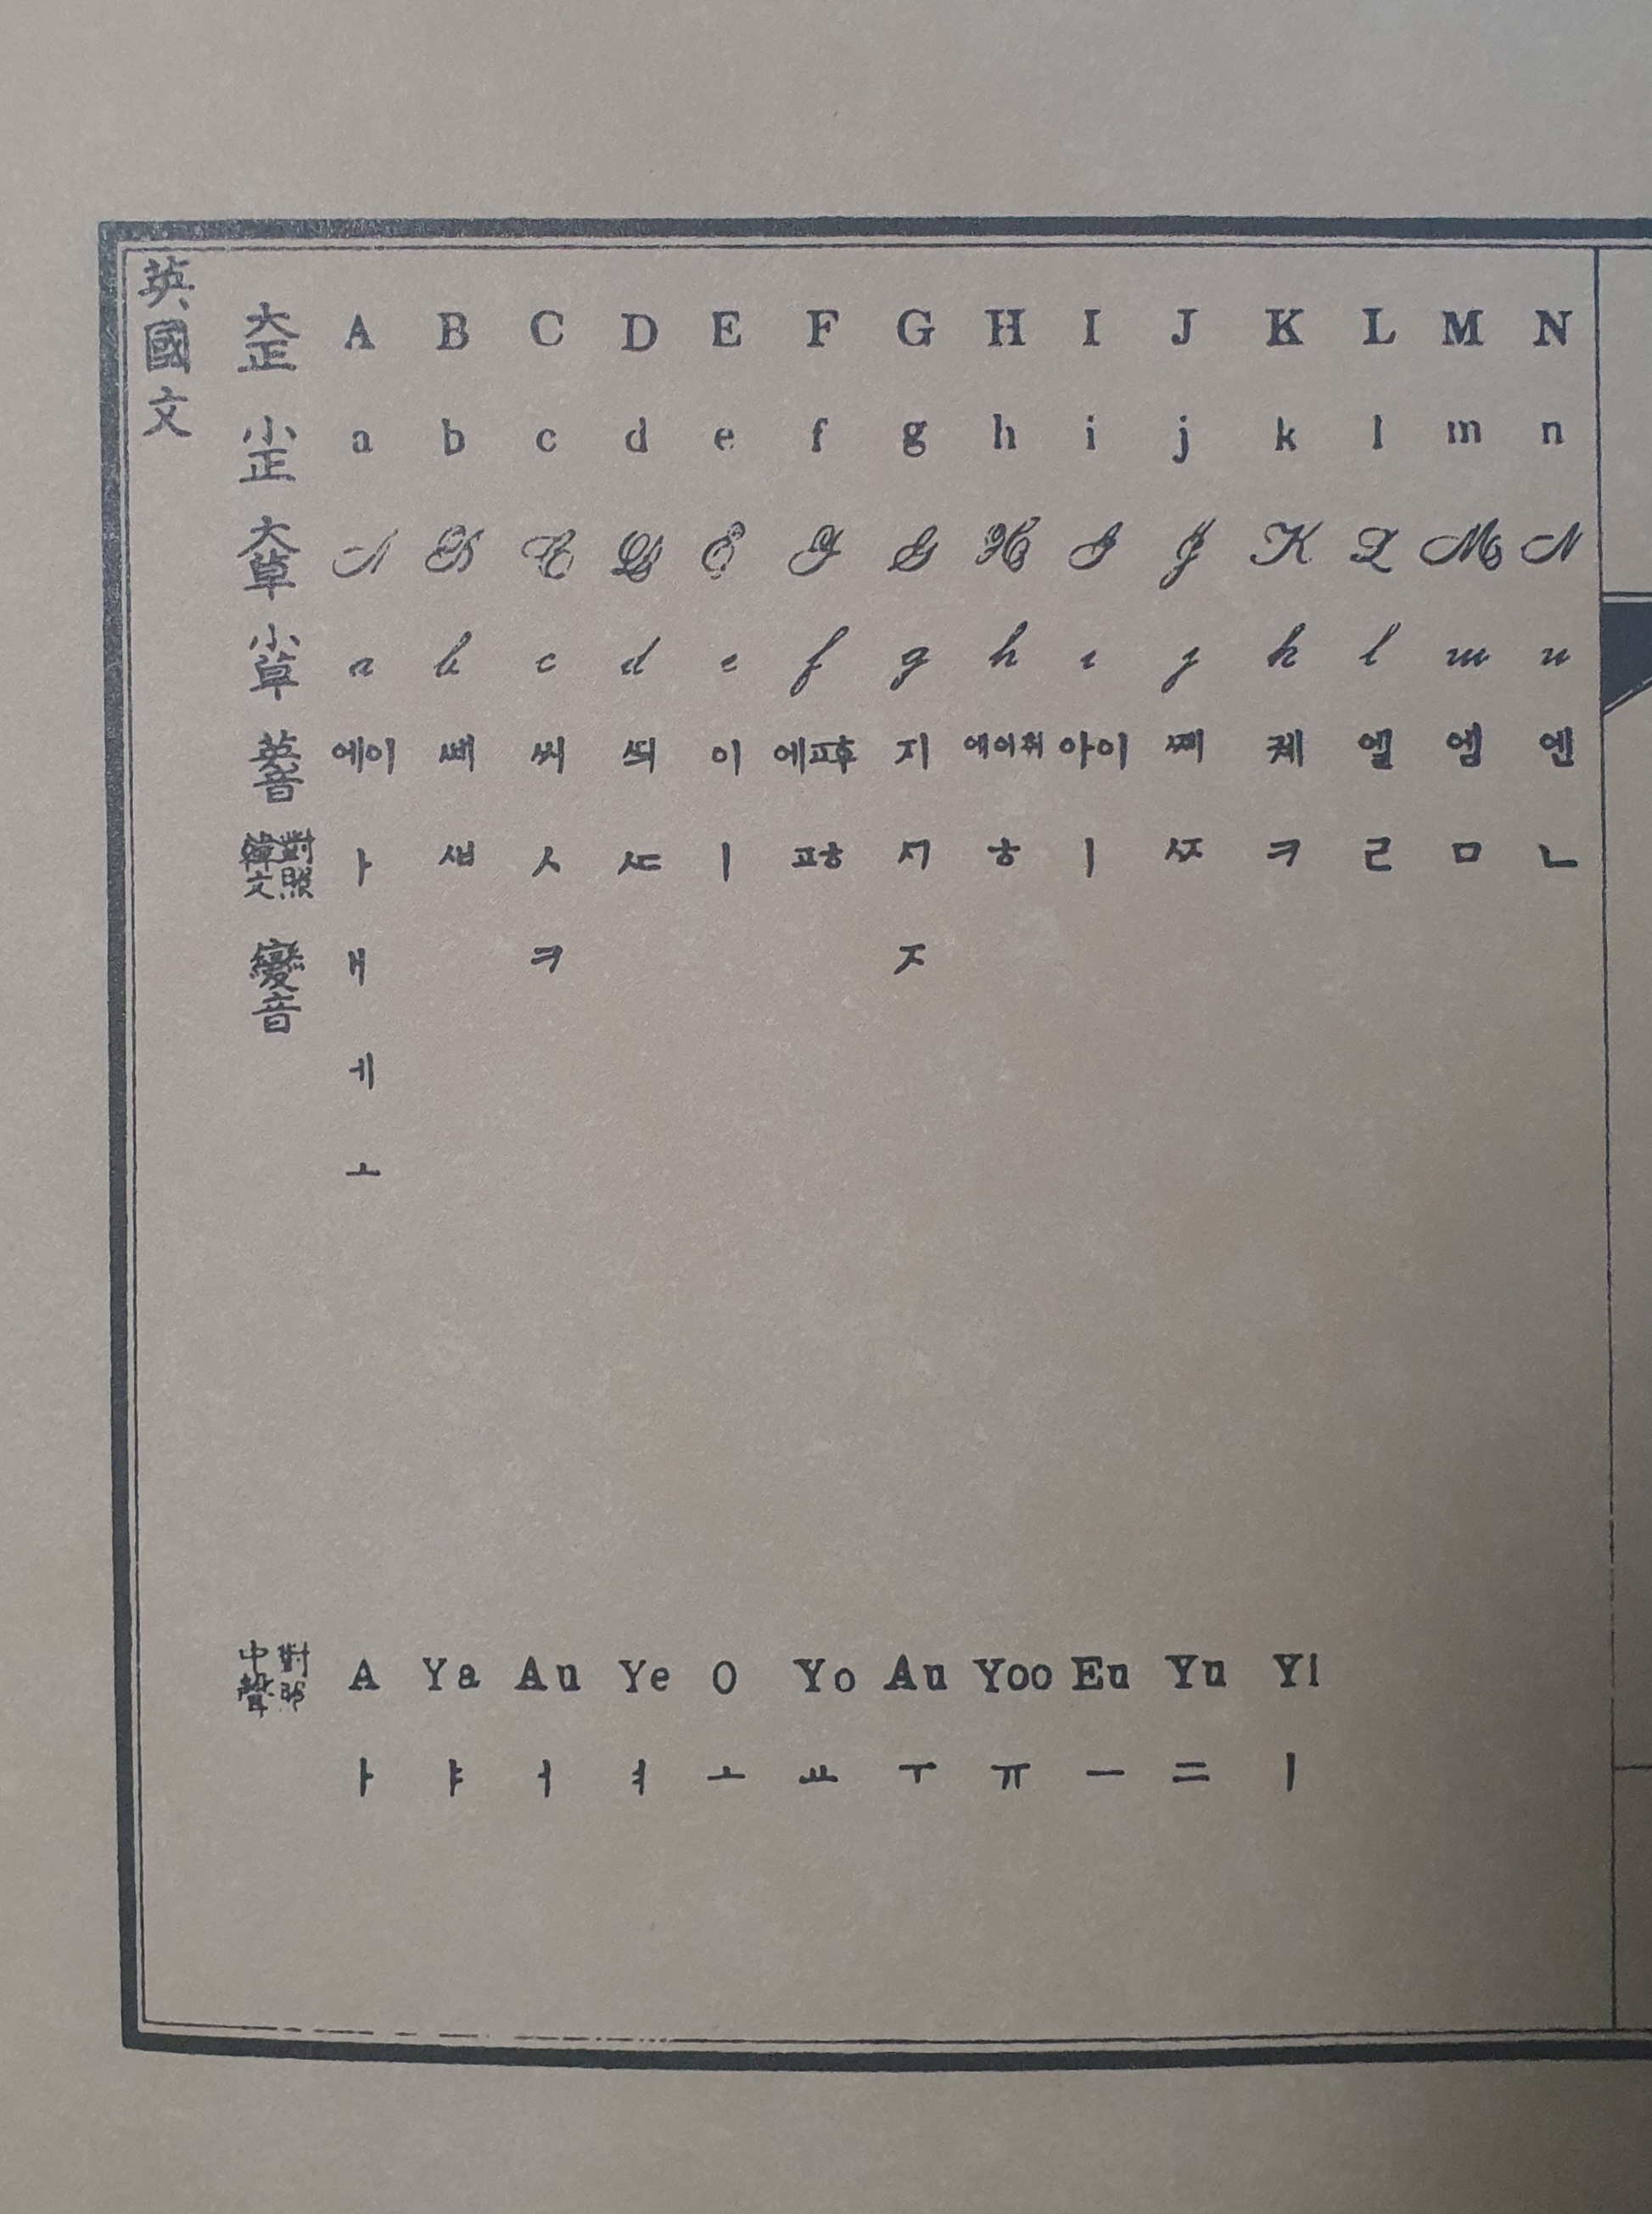 英國文
大正 A B C D E F G H I J K L M N
小正 a b c d e f g h i j k l m n
大草 A B C D E F G H I J K L M N
小草 a b c d e f g h i j k l m n
英音 에이 ᄲᅦ 씨 ᄯᅴ 이 에ᅗᅮ 지 애이취 아이 ᄶᅨ 켸 엘 엠 엔
韓文對照 ㅏ ㅽ ㅅ ㅼ ㅣ ᅗ ㅺ ㅎ ㅣ ㅾ ㅋ ㄹ ㅁ ㄴ
變音 ㅐ ㅋ ㅈ
ㅔ
ㅗ
中聲對照 A Ya Au Ye O Yo Au Yoo Eu Yu Yi
ㅏ ㅑ ㅓ ㅕ ㅗ ㅛ ㅜ ㅠ ㅡ ᆖ ㅣ